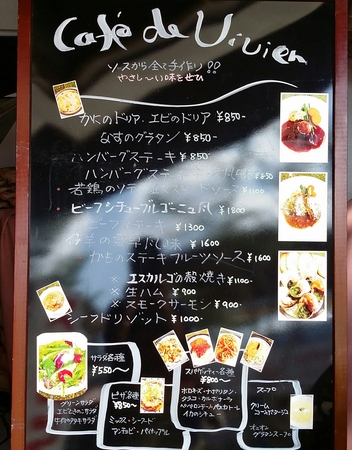 Café de Vivien
ソースから全て手作り!!
やさし〜い味をぜひ
かにのドリア、エビのドリア ¥850-
なすのグラタン ¥850-
ハンバーグステーキ ¥850
ハンバーグステーキ
・若鶏のソテー マスタードソース ¥1100
・ビーフシチューブルゴーニュ風 ¥1800
ステーキ ¥1300
¥1600
かものステーキフルーツソース ¥1600
× エスカルゴの殻焼き ¥1100-
× 生ハム ¥900-
× スモークサーモン ¥900-
シーフドリゾット ¥1000-
サラダ各種
¥550〜
グリーンサラダ
エビときのこサラダ
ピザ各種
¥850〜
ミックス・シーフード
アンチョビ・パイナップル
スパゲッティー各種
¥800〜
ボロネーズ・ナポリタン・
タラコ・カルボナーラ
ペペロンチーノ
スープ
クリーム
コーンポタージュ
オニオン
グラタンスープ